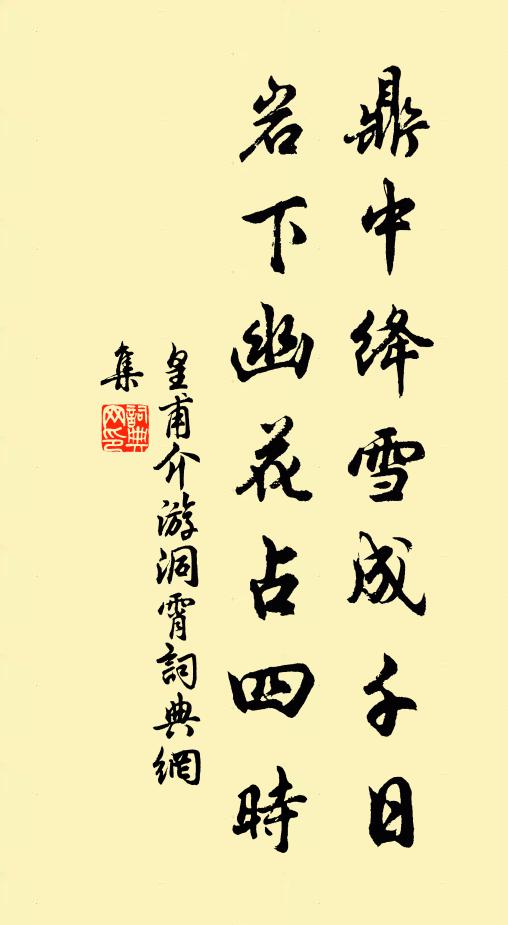 鼎中绛雪成千日
岩下幽花占四時
皇甫介游洞霄詞典網
集
詞典網印